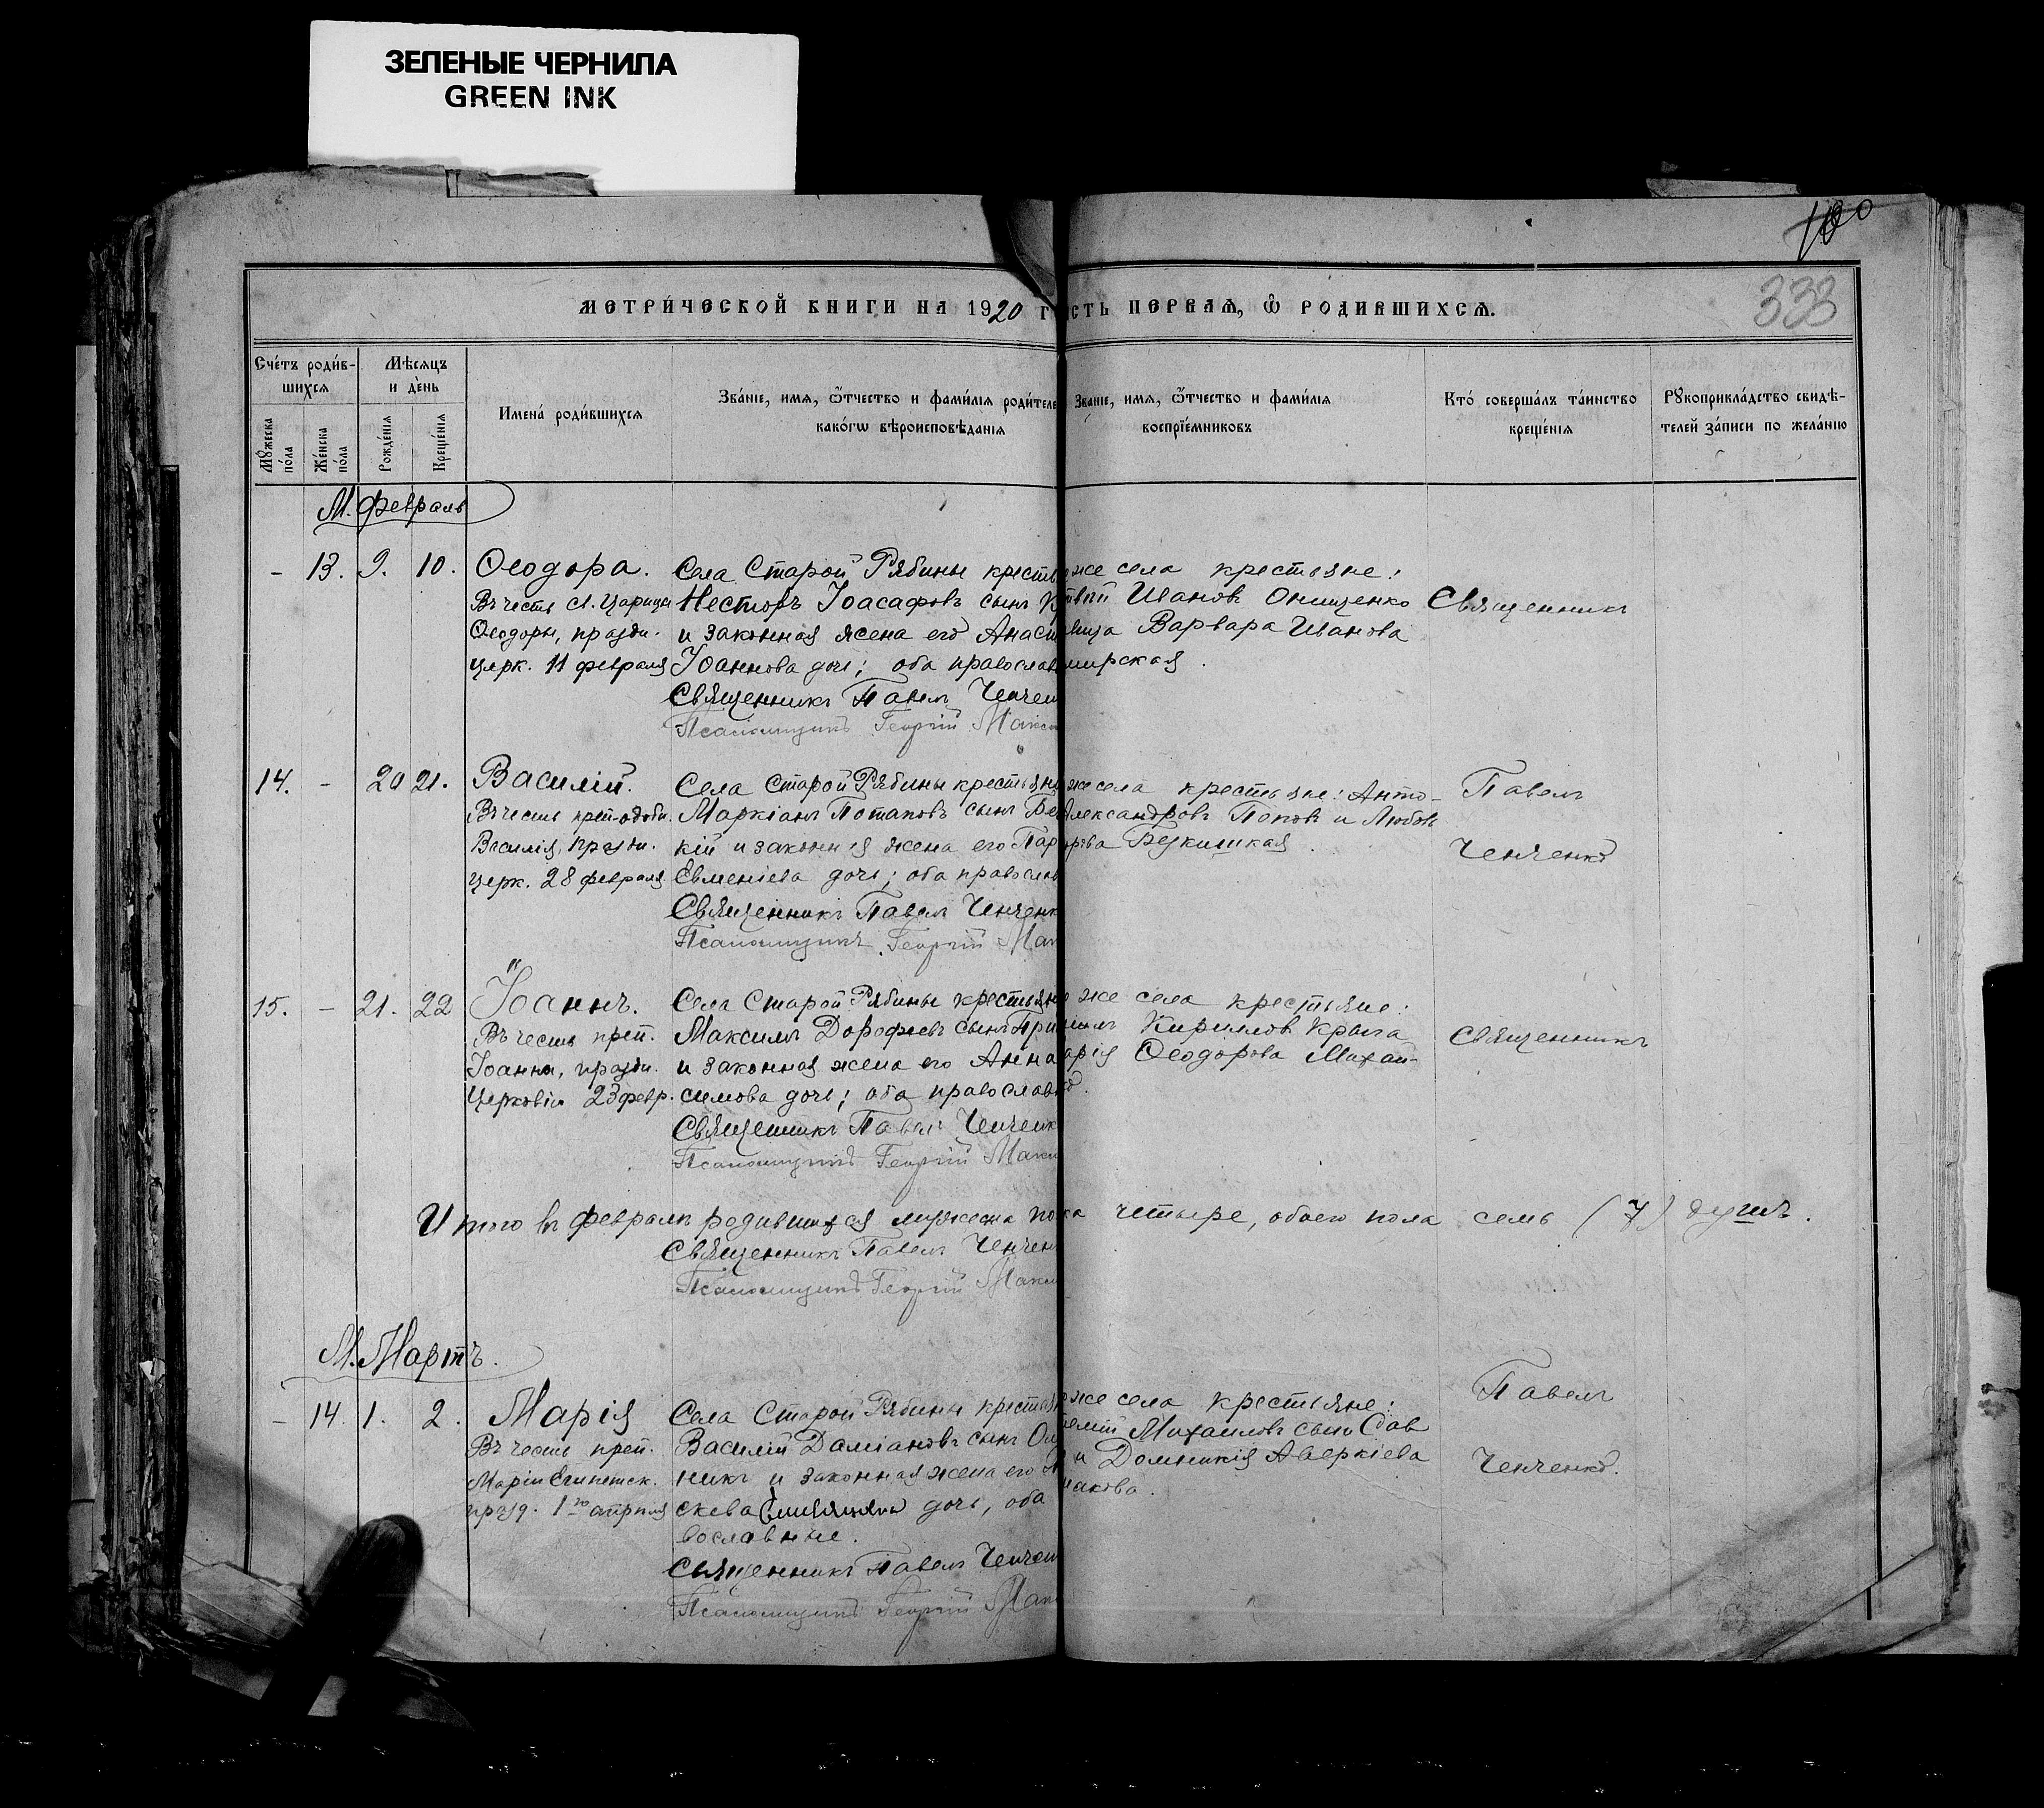 ЗЕЛЕНЫЕ ЧЕРНИЛА
GREEN INK
100
338
МЕТРИ́ЧЕСКОЙ КНИГИ НА 1920 г
сть ПЕРВАѦ, Ѿ РОДИВШИХСѦ.
Счéтъ роди́в-
шихсѧ
Мꙋжеска
по́ла
Же́нска
по́ла
Мѣ́сѧцъ
и де́нь
Рожде́нїѧ
Креще́нїѧ
Имена́ роди́вшихсѧ
Зва́нїе, имѧ, ѿтчество и фами́лїѧ роди́теле
како́гѡ вѣроисповѣ́данїѧ
Зва́нїе, имѧ, ѿтчество и фами́лїѧ
воспрїе́мниковъ
Кто́ соверша́лъ та́инство
креще́нїѧ
Рꙋкоприкла́дство свидѣ́-
телей за́писи по жела́нїю
М. Февраль
- 13. 9. 10.
Ѳеодора.
Въ честь св. Царицы
Ѳеодоры, праздн.
церк. 11 февраля
Села Старой Рябины кресть
Несторъ Іоасафовъ сынъ К
и законная жена его Анаст
Іоаннова дочь; оба православ
Священникъ Павелъ Ченчен
Псаломщикъ Георгій Макси
же села крестьяне:
Ивановъ Онищенко
вица Варвара Иванова
мирская.
Священникъ
14. - 20 21.
Василій.
Въ честь преподобн.
Василія, праздн.
церк. 28 февраля
Села Старой Рябины крестьяни
Маркіанъ Потаповъ сынъ Бе
кій и законная жена его Пар
Евменіева дочь; оба православ
Священникъ Павелъ Ченченк
Псаломщикъ Георгій Мак
же села крестьяне: Анто-
Александровъ Поповъ и Любовь
Безкишкая.
Павелъ
Ченченко
15. - 21. 22
Іоаннъ.
Въ честь преп.
Іоанна, праздн.
Церковію 23 февр.
Села Старой Рябины крестьян
Максимъ Дорофеевъ сынъ При
и законная жена его Анна
симова дочь; оба православ
Священникъ Павелъ Ченченк
Псаломщикъ Георгій Макси
же села крестьяне:
Кириллов Крыга
арія Ѳеодорова Михай-
Священникъ
Итого въ февралѣ родившихся мужеска пола четыре, обоего пола семь (7) душъ.
Священникъ Павелъ Ченчен
Псаломщикъ Георгій Макси
М. Мартъ.
- 14. 1. 2.
Марія
Въ честь преп.
Маріи Египетск.
празд. 1го апрѣля
Села Старой Рябины крестьян
Василій Даміановъ сынъ Ол
никъ и законная жена его П
скева дочь, оба
вославные.
Священникъ Павелъ Ченчен
Псаломщикъ Георгій Мак
же села крестьяне:
Михаиловъ сынъ Сав
и Домникія Аверкіева
Павелъ
Ченченко.